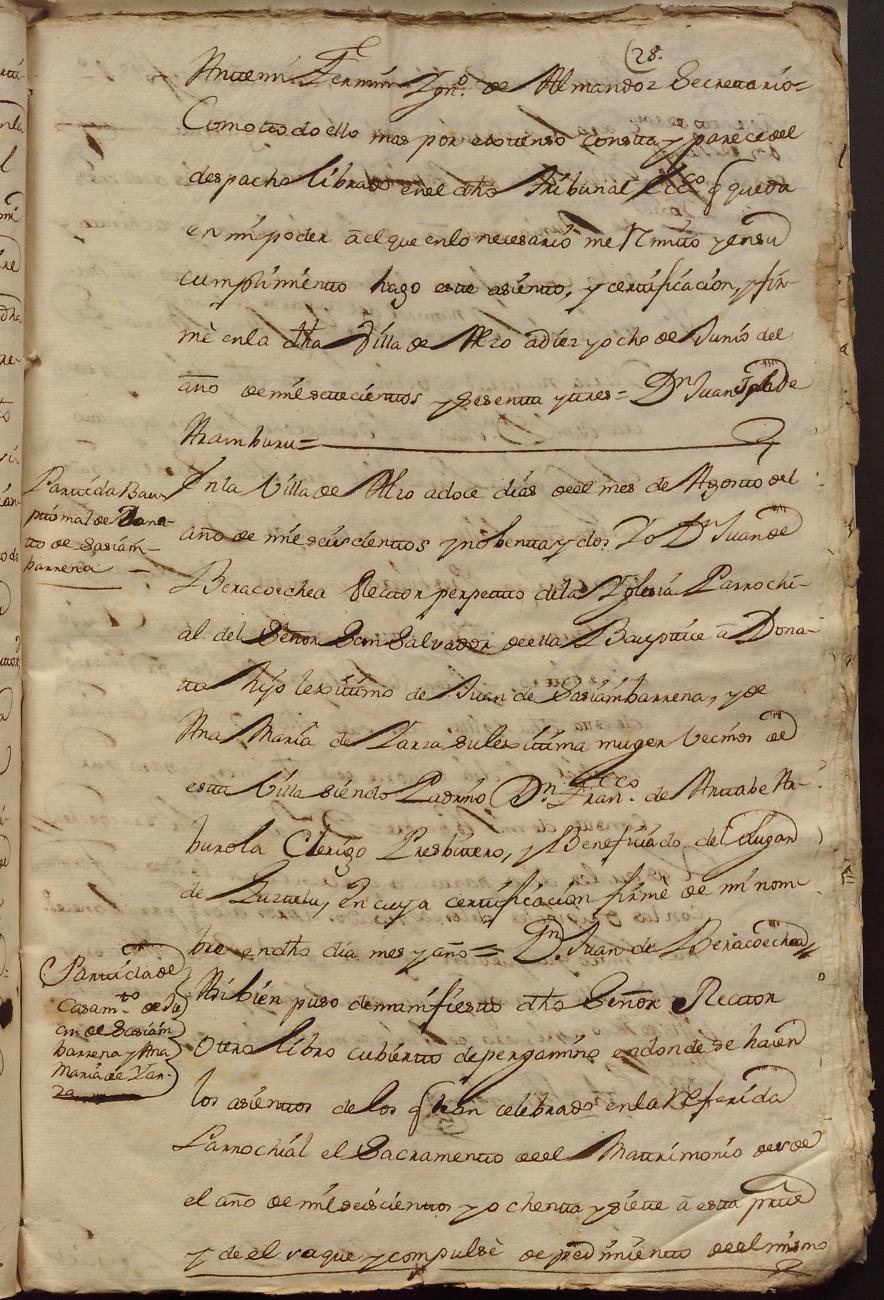 (28.
Antemi Fermin Ygn.º de Almandoz Secretario=
Como todo ello mas por extenso consta, y parece del
despacho librado en el dho Tribunal Ecco q queda
en mi poder â el que en lo necesario me Rmito y en su
cumplimiento hago este asiento, y certificacion, y fir-
mè en la dha Villa de Alzo a diez y ocho de Junio del
año de mil setecientos y sesenta y tres= Dn Juan Jph de
Aramburu=
Partida Bau-
ptismal de Dona-
to de Sasiam-
barrena
En la Villa de Alzo a doce dias de el mes de Agosto del
año de mil seiscientos y nobenta y dos Yo Dn Juan de
Beracoechea Rector perpetuo de la Yglesia Parrochi-
al del Señor San Salvador de ella Baupticè â Dona-
to hijo lexitimo de Juan de Sasiambarrena, y de
Ana Maria de Yarza su lexitima muger vecinos de
esta Villa siendo Padrino Dn. Franco. de Artabe Ar-
burola Clerigo Presbitero, y Beneficiado del Lugar
de , En cuya certificacion firmè de mi nom-
bre en dho dia mes y año= Dn. Juan de Beracoechea
Partida de
Casamto. de Ju
an de Sasiam
barrena y Ana
Maria de Yar-
za
Asi bien puso de manifiesto dho Señor Rector
Otro libro cubierto de pergamino en donde se hacen
los asientos de los q han celebrado en la Referida
Parrochial el Sacramento de el Matrimonio desde
el año de mil seiscientos y ochenta y siete â esta prte
y de el saque y compulsè de pedimiento de el mismo